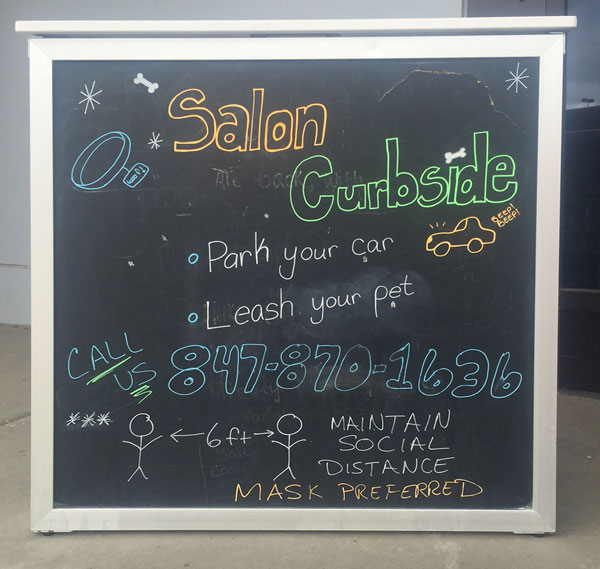 Salon
Curbside
woof!
BEEP!
BEEP!
Park your car
Leash your pet
CALL
US
847-870-1636
6ft
MAINTAIN
SOCIAL
DISTANCE
MASK PREFERRED